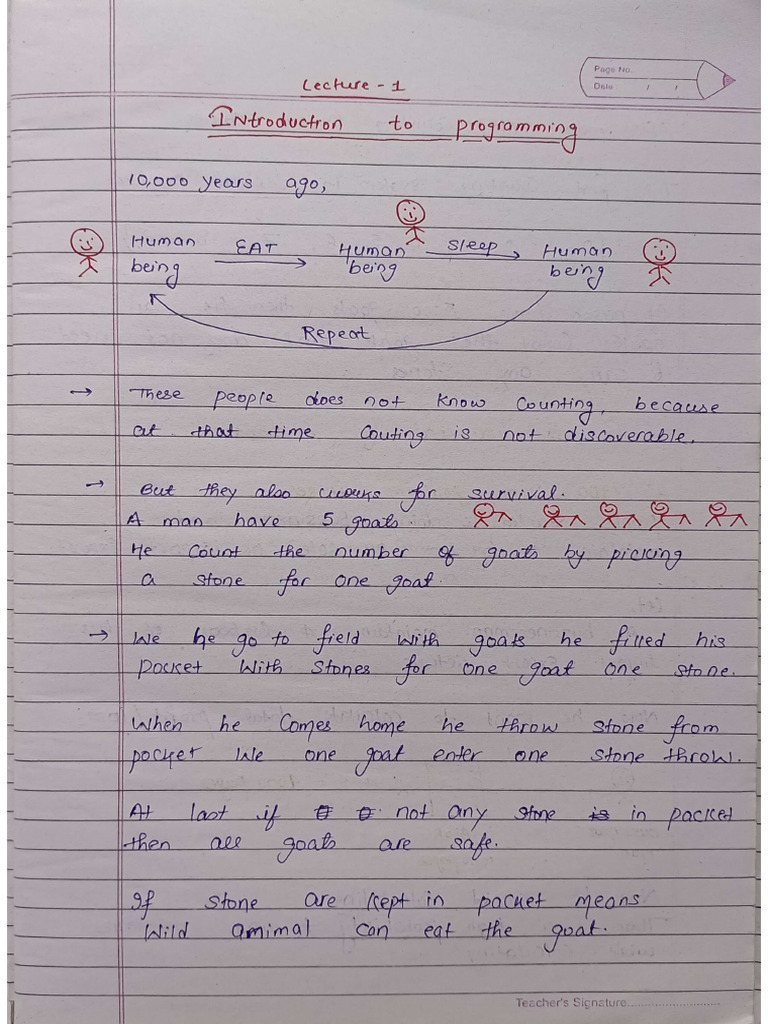 Page No.
Date / /
Lecture - 1
INtroduction to programming
10,000 years ago,
Human being EAT Human being Sleep Human being
Repeat
→ These people does not know counting, because
at that time Couting is not discoverable.
→ But they also works for survival.
A man have 5 goats.
He count the number of goats by picking
a stone for one goat.
→ We he go to field with goats he filled his
pocket with stones for one goat one stone.
When he comes home he throw stone from
pocket We one goat enter one stone throw.
At last if not any stone is in packet
then all goats are safe.
If stone are kept in packet means
Wild amimal can eat the goat.
Teacher's Signature..........................